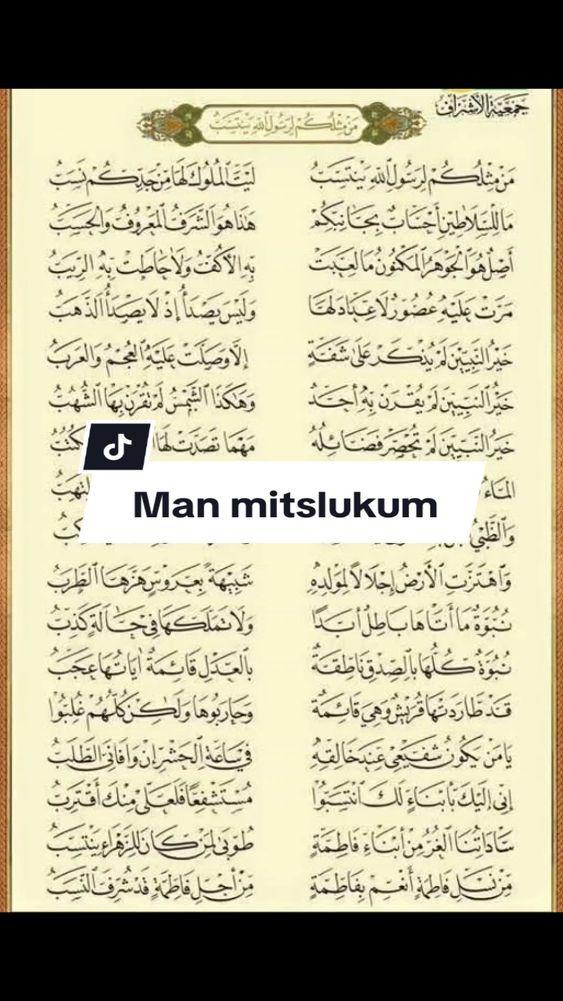 جمعية الأشراف
من مثلكم لرسول الله ينتسب
من مثلكم لرسول الله ينتسب ليت الملوك لها من جدكم نسب
ما للسلاطين أحساب بجانبكم هذا هو الشرف المعروف والحسب
أصل هو الجوهر المكنون ما لعبت به الأكف ولا حاطت به الريب
مرت عليه عصور لا عداد لها وليس يصدأ إذ لا يصدأ الذهب
خير النبيين لم يذكر على شفة إلا وصلت عليه العجم والعرب
خير النبيين لم يقرن به أحد وهكذا الشمس لم تقرن بها الشهب
خير النبيين لم تحصر فضائله مهما تصدت لها
الماء
Man mitslukum
والظبي
واهتزت الأرض إجلالا لمولده شبيهة بعروس هزها الطرب
نبوة ما أتاها باطل أبدا ولا تملكها في حالة كذب
نبوة كلها بالصدق ناطقة بالعدل قائمة آياتها عجب
قد طاردتها قريش وهي قائمة وحاربوها ولكن كلهم غلبوا
يا من يكون شفيعي عند خالقه في ساعة الحشر إن وافاني الطلب
إني إليك بأبناء لك انتسبوا مستشفعا فلعلي منك أقترب
ساداتنا الغر من أبناء فاطمة طوبى لمن كان للزهراء ينتسب
من نسل فاطمة أنعم بفاطمة من أجل فاطمة قد شرف النسب